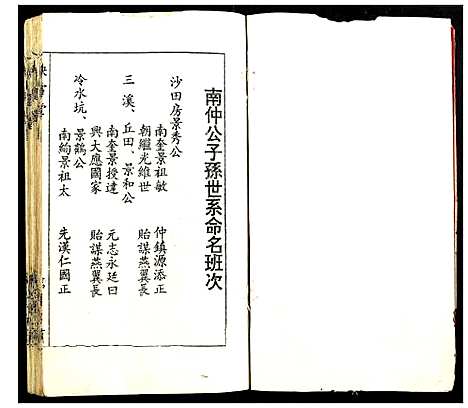 南仲公子孫世系命名班次
沙田房景秀公
南奎景祖敏 仲鎮源添正
朝繼光維世 貽謀燕翼長
三溪、丘田、景和公
南奎景授達 元志永廷曰
興大應國家 貽謀燕翼長
冷水坑、景鶴公
南絢景祖太 先漢仁國正